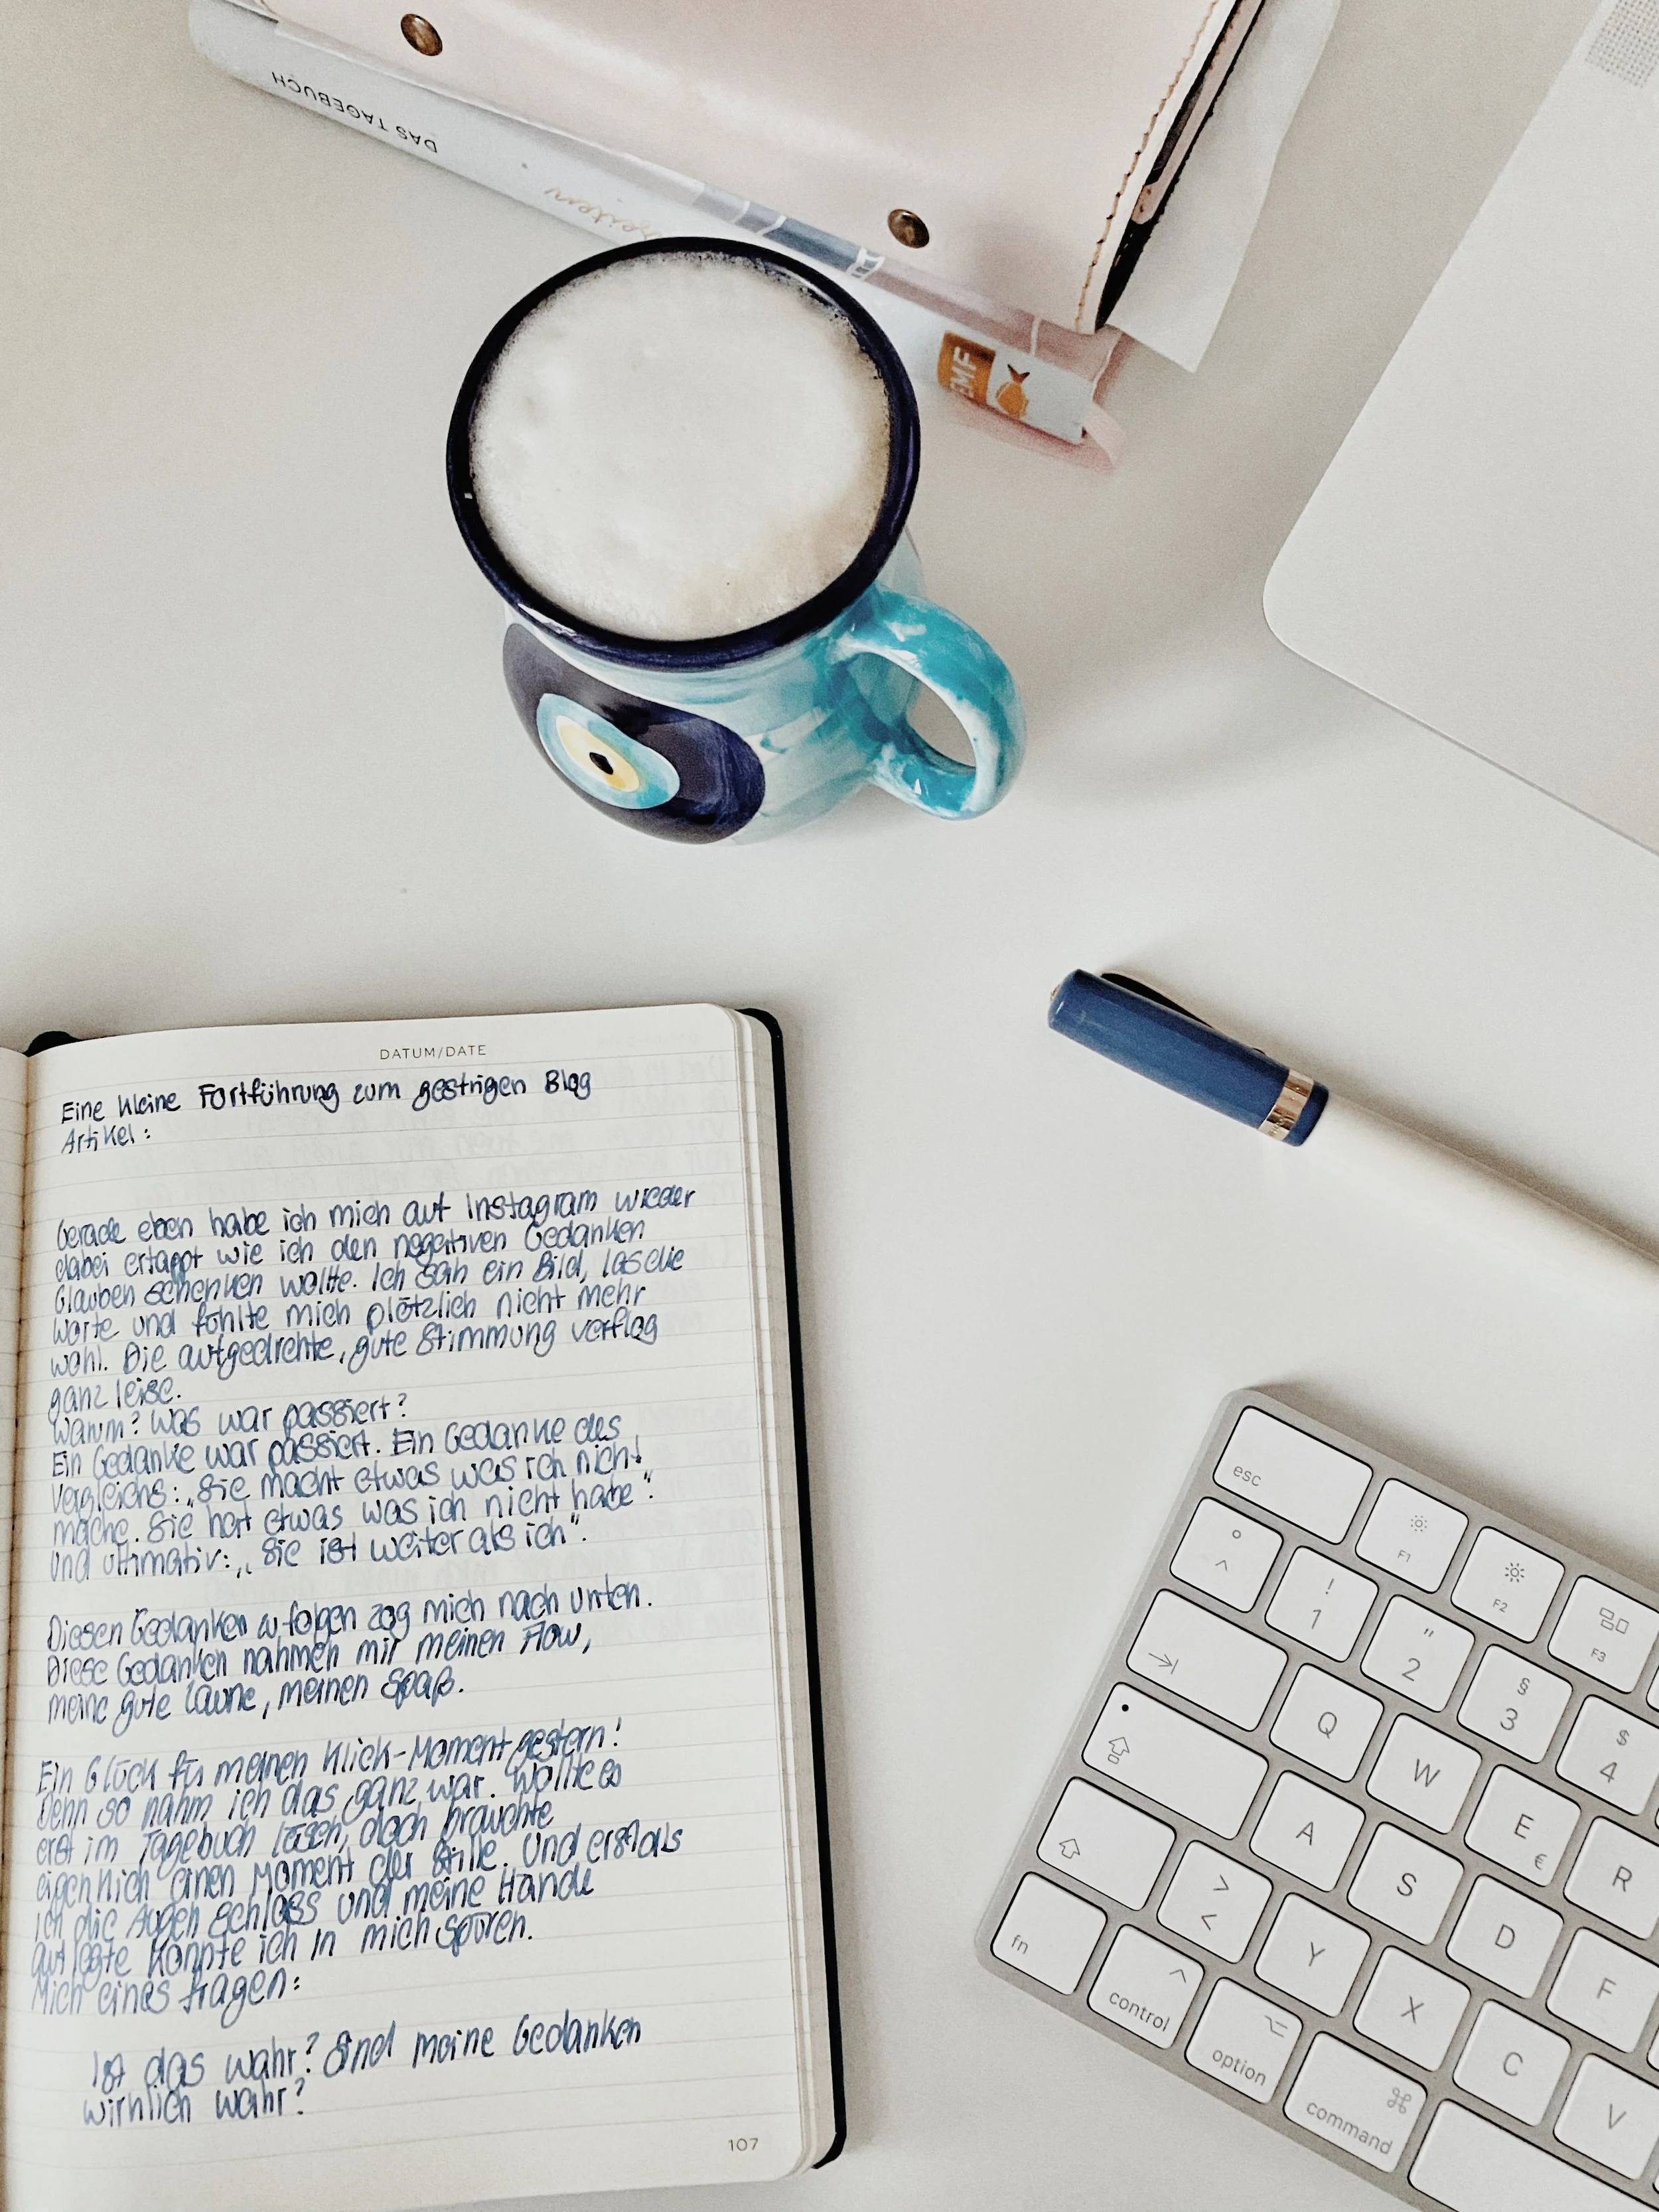 DAS TAGEBUCH
EMF
DATUM/DATE
Eine kleine Fortführung zum gestrigen Blog
Artikel:
Gerade eben habe ich mich auf Instagram wieder
dabei ertappt wie ich den negativen Gedanken
Glauben schenken wollte. Ich sah ein Bild, las die
Worte und fühlte mich plötzlich nicht mehr
wohl. Die aufgedrehte, gute Stimmung verflog
ganz leise.
Warum? Was war passiert?
Ein Gedanke war passiert. Ein Gedanke des
Vergleichs: „Sie macht etwas was ich nicht
mache. Sie hat etwas was ich nicht habe“.
Und ultimativ: „Sie ist weiter als ich“.
Diesen Gedanken zu folgen zog mich nach unten.
Diese Gedanken nahmen mir meinen Flow,
meine gute Laune, meinen Spaß.
Ein Glück für meinen Klick-Moment gestern!
Denn so nahm ich das ganz war. Wollte es
erst im Tagebuch lösen, doch brauchte
eigentlich einen Moment der Stille. Und erst als
ich die Augen schloss und meine Hände
auflegte konnte ich in mich spüren.
Mich eines fragen:
Ist das wahr? Sind meine Gedanken
wirklich wahr?
107
esc
F1
F2
F3
° ^
! 1
" 2
§ 3
$ 4
Q
W
E €
R
A
S
D
F
> <
Y
X
C
V
fn
control
option
command